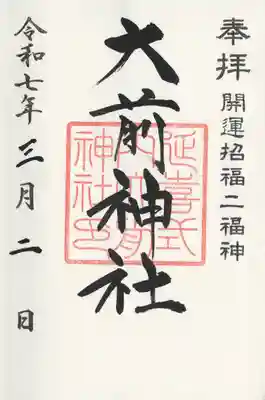 奉拝 開運招福二福神
大前神社
延喜式
大前
神社印
令和七年三月二日